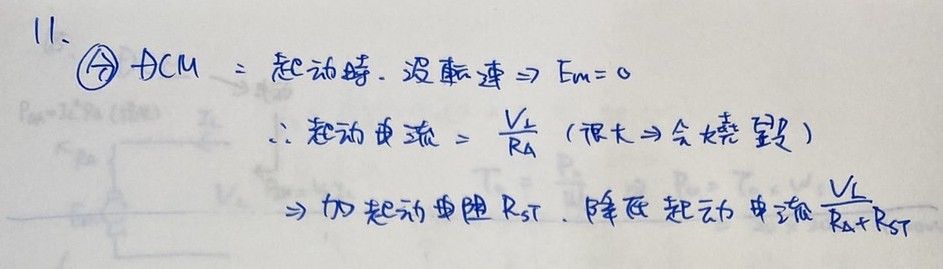 11.
㊕ DCM : 起动時. 沒転速 ⇒ Em = 0
∴ 起动电流 = V_L/R_A (很大 → 会燒毀)
⇒ 加起动电阻 R_ST. 降低起动电流 V_L/(R_A+R_ST)